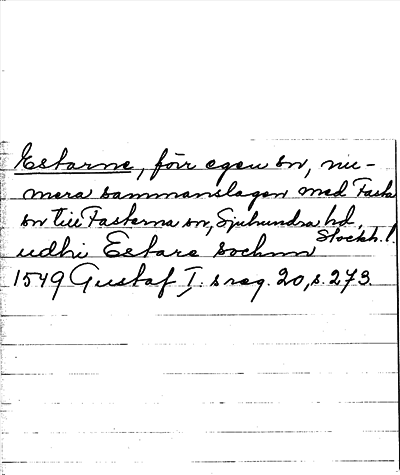 Estarne, förr egen sn, nu-
mera sammanslagen med Fasta
sn till Fasterna sn, Sjuhundra hd.
Stockh. l.
udhi Estare sochnn
1549 Gustaf I:s reg. 20, s. 273.